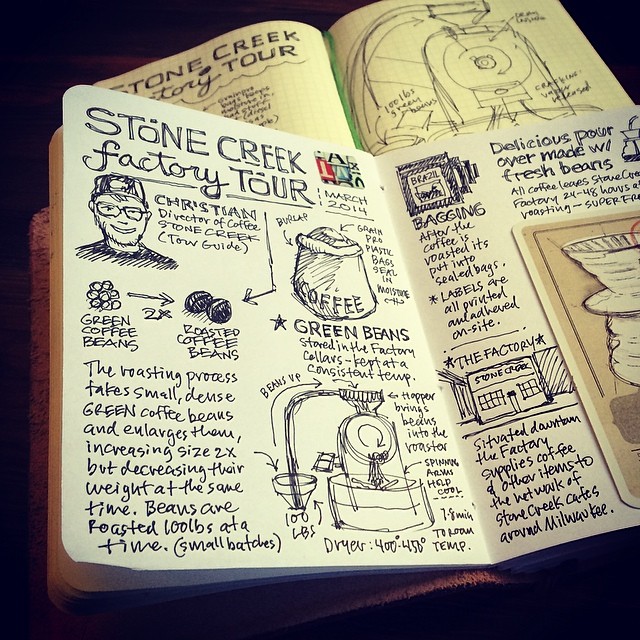 STONE CREEK
factory TOUR
100 lbs
green
beans
STONE CREEK
factory TOUR
1 MARCH
2014
CHRISTIAN
Director of Coffee
STONE CREEK
(Tour Guide)
BURLAP
GRAIN
PRO
PLASTIC
BAGS
SEAL
IN
MOISTURE
COFFEE
2X
GREEN
COFFEE
BEANS
ROASTED
COFFEE
BEANS
★ GREEN BEANS
Stored in the Factory
Cellars - kept at a
consistent temp.
The roasting process
takes small, dense
GREEN coffee beans
and enlarges them,
increasing size 2x
but decreasing their
weight at the same
time. Beans are
Roasted 100lbs at a
time. (small batches)
BEANS UP
Hopper
brings
beans
into the
roaster
SPINNING
ARMS
HELP
COOL
100
LBS
7-8 min
TO ROOM
TEMP.
Dryer: 400°-450°
BRAZIL
BAGGING
After the
coffee is
roasted its
put into
sealed bags.
* LABELS are
all printed
and adhered
on-site.
* THE FACTORY *
STONE CREEK
Situated downtown
the Factory
supplies coffee
& other items to
the network of
Stone Creek Cafes
around Milwaukee.
Delicious pour
over made w/
fresh beans
All coffee leaves Stone Creek
Factory 24-48 hours
roasting - SUPER